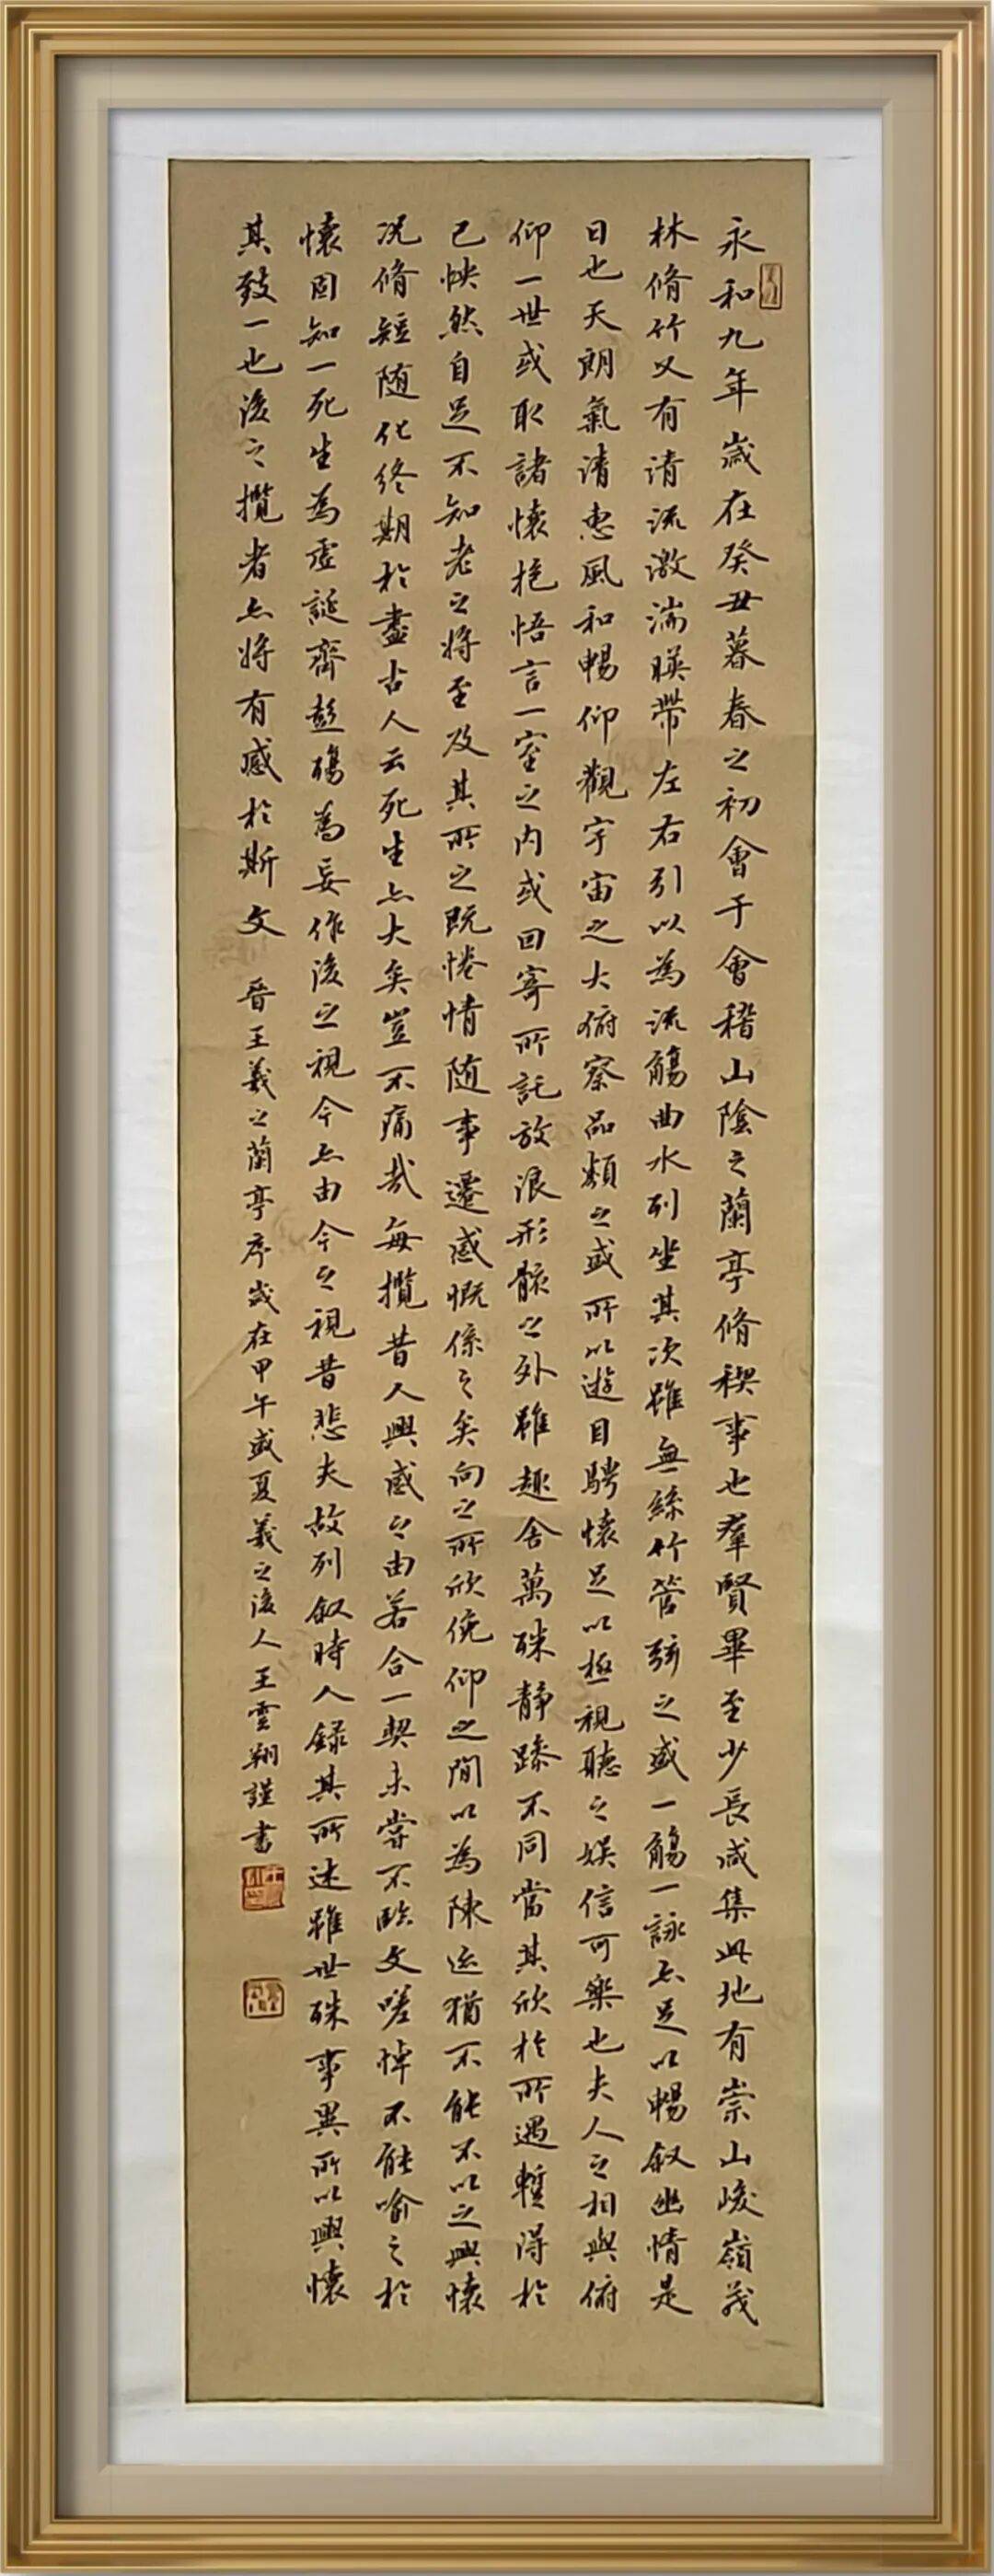 永和九年歲在癸丑暮春之初會于會稽山陰之蘭亭脩稧事也羣賢畢至少長咸集此地有崇山峻嶺茂
林脩竹又有清流激湍暎帶左右引以為流觴曲水列坐其次雖無絲竹管弦之盛一觴一詠亦足以暢叙幽情是
日也天朗氣清惠風和暢仰觀宇宙之大俯察品類之盛所以遊目騁懷足以極視聽之娛信可樂也夫人之相與俯
仰一世或取諸懷抱悟言一室之內或因寄所託放浪形骸之外雖趣舍萬殊静躁不同當其欣於所遇暫得於
己怏然自足不知老之將至及其所之既惓情隨事遷感慨係之矣向之所欣俛仰之間以為陳迹猶不能不以之興懷
况脩短随化終期於盡古人云死生亦大矣豈不痛哉每攬昔人興感之由若合一契未嘗不臨文嗟悼不能喻之於
懷固知一死生為虛誕齊彭殤為妄作後之視今亦由今之視昔悲夫故列叙時人錄其所述雖世殊事異所以興懷
其致一也後之攬者亦將有感於斯文 晉王羲之蘭亭序歲在甲午盛夏羲之後人王雲翔謹書